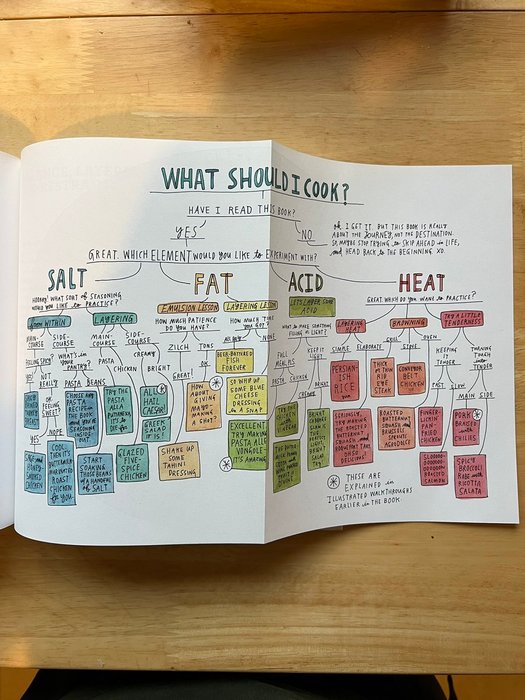 WHAT SHOULD I COOK?
HAVE I READ THIS BOOK?
YES
NO
oh, I GET IT. BUT THIS BOOK IS REALLY
ABOUT the JOURNEY, NOT the DESTINATION.
SO MAYBE STOP TRYING to SKIP AHEAD in LIFE,
and HEAD BACK to the BEGINNING XO.
GREAT. WHICH ELEMENT WOULD YOU LIKE to EXPERIMENT WITH?
SALT
FAT
ACID
HEAT
HOORAY! WHAT SORT of SEASONING
WOULD YOU LIKE to PRACTICE?
FROM WITHIN
LAYERING
MAIN-
COURSE
SIDE-
COURSE
MAIN-
COURSE
SIDE-
COURSE
FEELING SPICY?
YES
NOT
REALLY
WHAT'S in YOUR
PANTRY?
PASTA
BEANS
PASTA
CHICKEN
CREAMY
BRIGHT
OR
FEELING
SWEET?
YES
NOPE
SPICED
CHICKEN
COOL.
THEN IT'S
BUTTERMILK
MARINATED
ROAST
CHICKEN
for YOU.
CHOOSE ANY
PASTA
RECIPE in the
BOOK and
START SOAKING
THOSE BEANS
a HANDFUL
of SALT
TRY the
PASTA
ALLA
GLAZED
FIVE-
SPICE
CHICKEN
ALL
HAIL
CAESAR
GREEK
SALAD
IT IS!
EMULSION LESSON
LAYERING LESSON
HOW MUCH PATIENCE
DO YOU HAVE?
HOW MUCH TIME
YOU GOT?
ZILCH
TONS
GREAT!
OK
BEER-BATTERED
FISH
FOREVER
HOW
ABOUT
GIVING
MAYO-
MAKING
A SHOT?
SO WHIP UP
SOME BLUE
CHEESE
DRESSING
in A SNAP
SHAKE UP
SOME
TAHINI
DRESSING
EXCELLENT
TRY MAKING
PASTA ALLE
VONGOLE-
IT'S AMAZING
LET'S LAYER SOME
ACID
WHAT to MAKE SOMETHING
FILLING or LIGHT?
FULL
MEALS
KEEP IT
LIGHT
PASTA
CHICKEN
CREAMY
BRIGHT
GREAT. WHICH DO YOU WANT to PRACTICE?
LAYERING
HEAT
BROWNING
TRY A LITTLE
TENDERNESS
SIMPLE
ELABORATE
GRILL
STOVE
OVEN
KEEPING
IT
TENDER
TURNING
TOUGH
into
TENDER
FAST
SLOW
MAIN
SIDE
PERSIAN-
ISH
RICE
THICK or
THIN
RIB
EYE
STEAK
CONVEYOR
BELT
CHICKEN
SERIOUSLY,
TRY MAKING
the ROASTED
BUTTERNUT
SQUASH and
TOOOOO
DELICIOUS
ROASTED
BUTTERNUT
SQUASH and
BRUSSELS
SPROUTS in
AGRODOLCE
FINGER-
LICKIN'
PAN-
FRIED
CHICKEN
PORK
BRAISED
with
CHILIES
ROASTED
SALMON
SPICY
BROCCOLI
RABE with
RICOTTA
SALATA
THESE ARE
EXPLAINED in
ILLUSTRATED WALKTHROUGHS
EARLIER in the BOOK